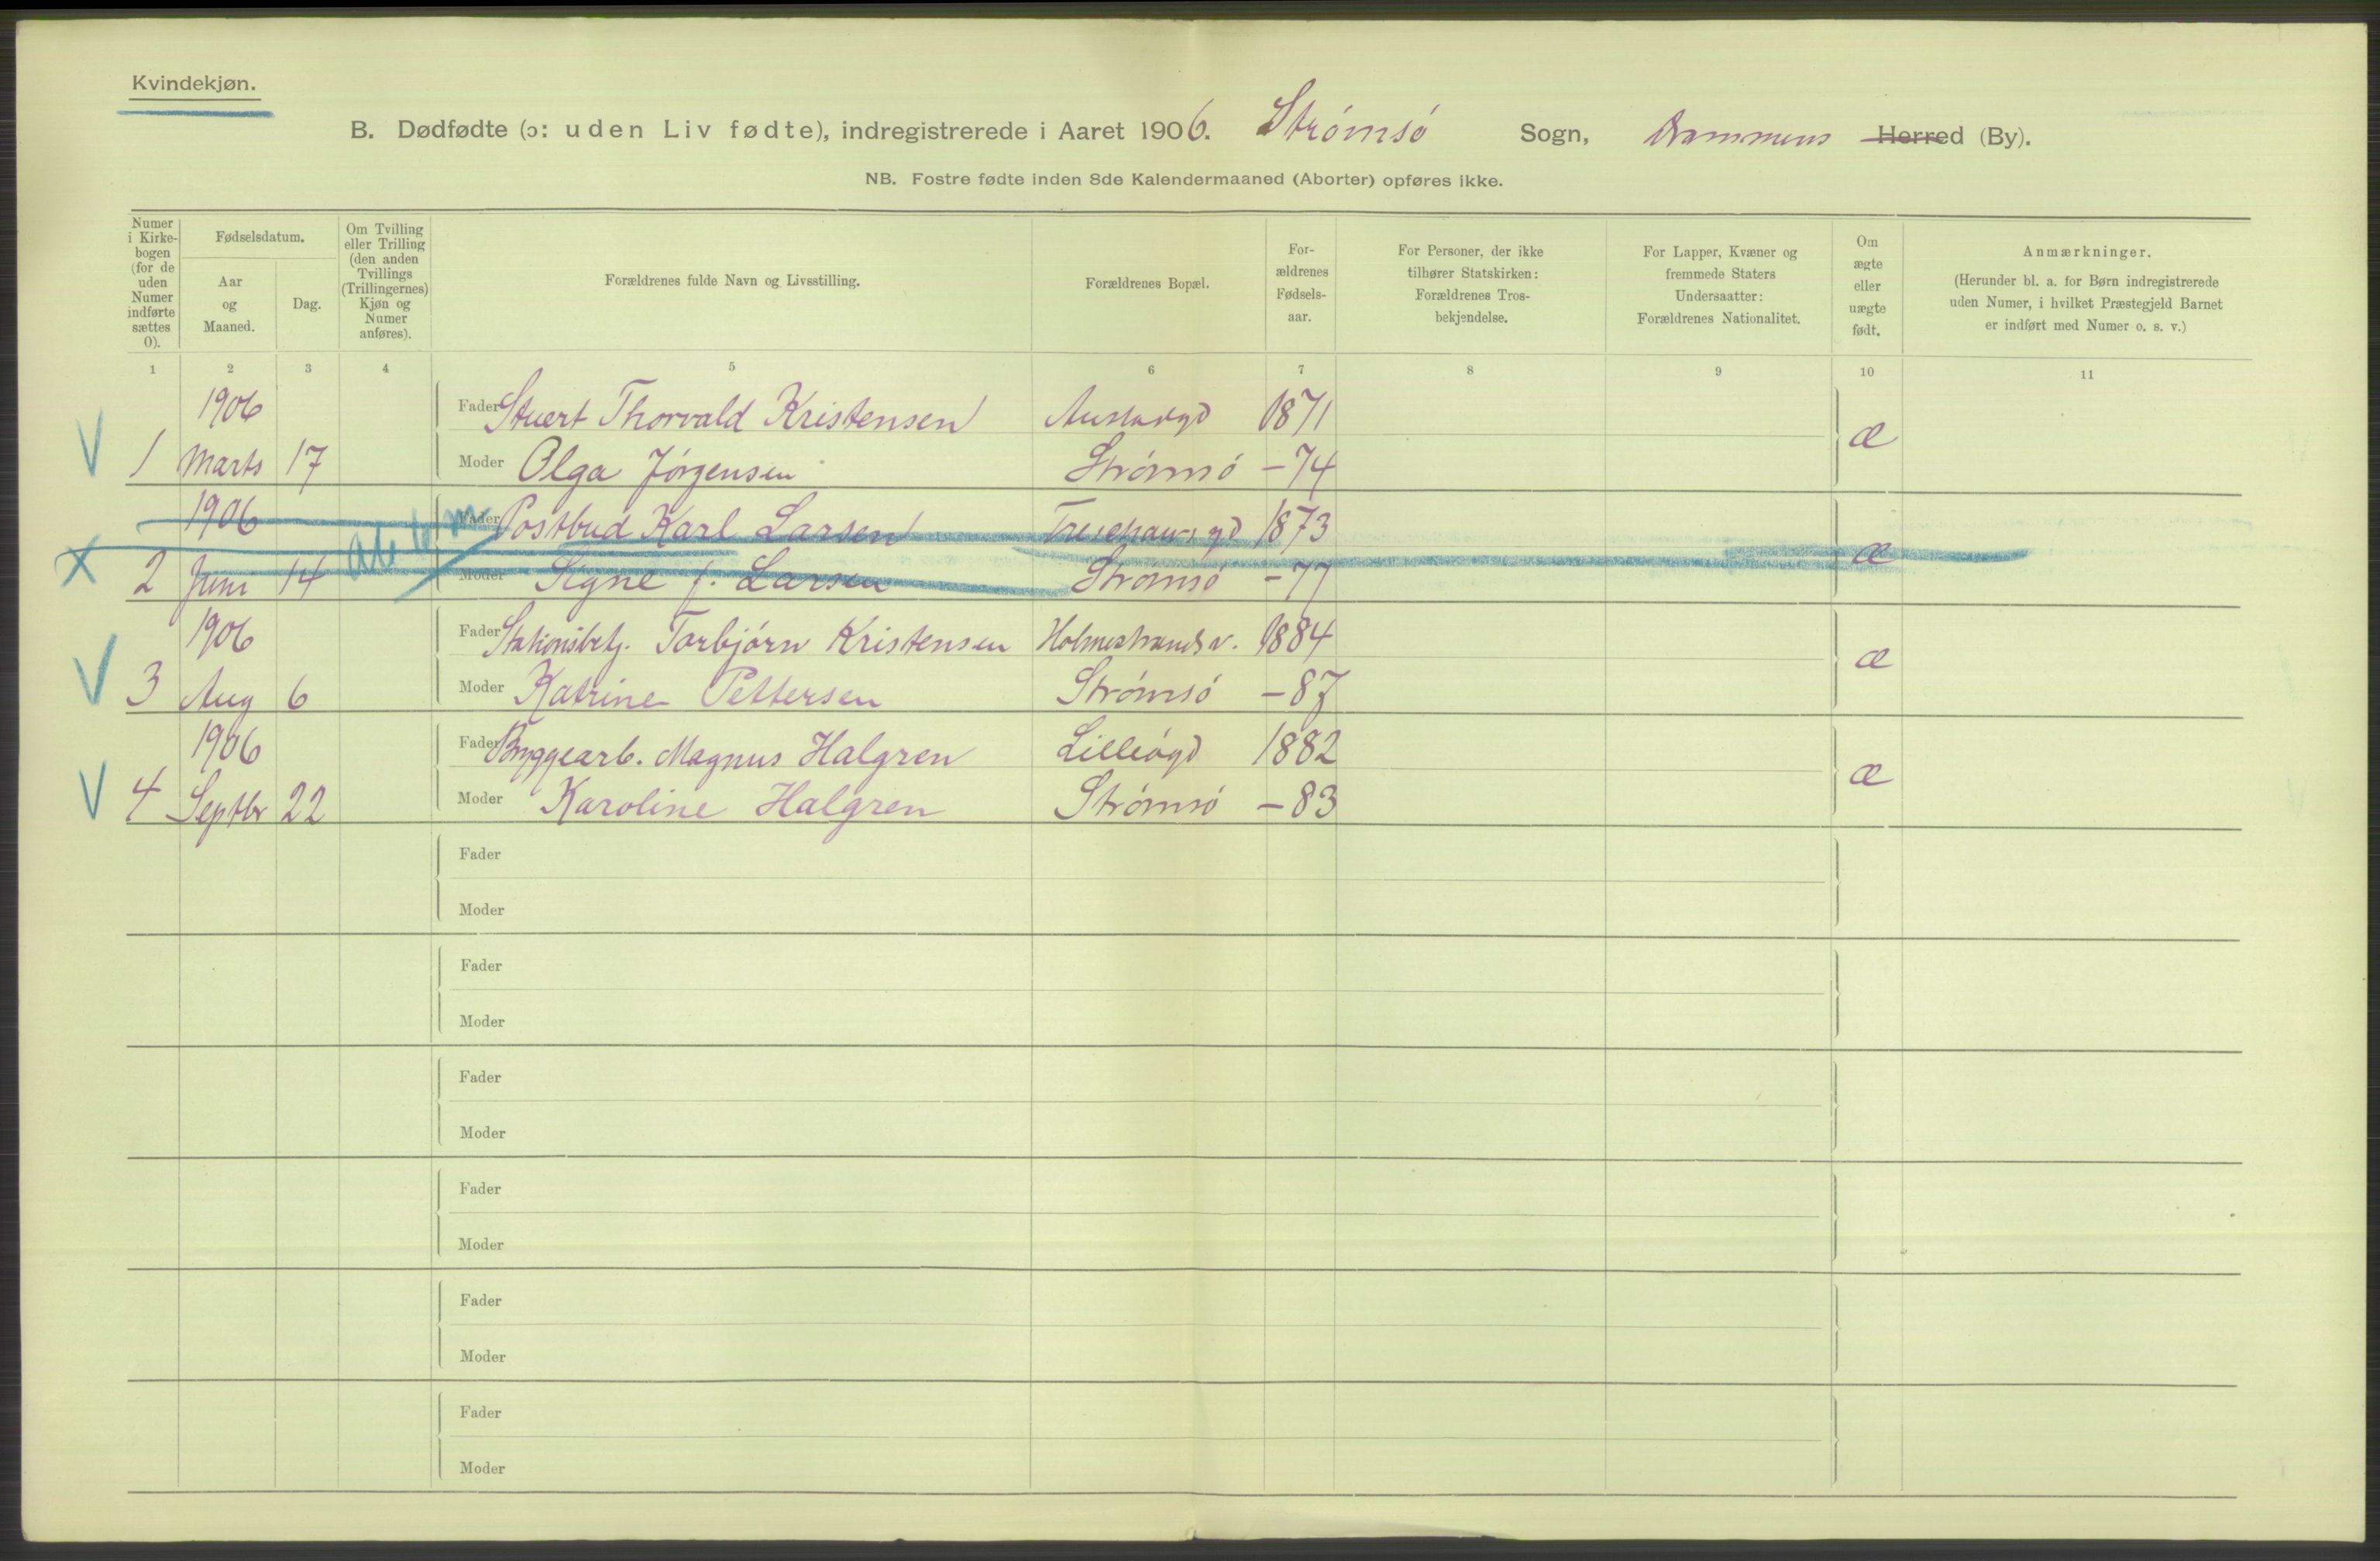 Kvindekjøn.
B. Dødfødte (ɔ: uden Liv fødte), indregistrerede i Aaret 1906. Strømsó Sogn, Drammens Herred (By).
NB. Fostre fødte inden 8de Kalendermaaned (Aborter) opføres ikke.
Numer i Kirke-bogen (for de uden Numer indførte sættes 0).
Fødselsdatum.
Aar og Maaned.
Dag.
Om Tvilling eller Trilling (den anden Tvillings (Trillingernes) Kjøn og Numer anføres).
Forældrenes fulde Navn og Livsstilling.
Forældrenes Bopæl.
For-ældrenes Fødsels-aar.
For Personer, der ikke tilhører Statskirken: Forældrenes Tros-bekjendelse.
For Lapper, Kvæner og fremmede Staters Undersaatter: Forældrenes Nationalitet.
Om ægte eller uægte født.
Anmærkninger.
(Herunder bl. a. for Børn indregistrerede uden Numer, i hvilket Præstegjeld Barnet er indført med Numer o. s. v.)
1 2 3 4 5 6 7 8 9 10 11
1906 Fader Stuert Thorvald Kristensen 1871
V 1 Marts 17 Moder Olga Jórgensen Strómsó -74 æ
1906 Fader Postbud Karl Larsen 1873
x 2 Juni 14 Moder Signe f. Larsen Strómsó -77 æ
1906 Fader Stationsbetj. Torbjórn Kristensen Holmestrandsv. 1884
V 3 Aug 6 Moder Katrine Pettersen Strómsó -87 æ
1906 Fader Byggearb. Magnus Halgren Lilleógd 1882
V 4 Septbr 22 Moder Karoline Halgren Strómsó -83 æ
Fader
Moder
Fader
Moder
Fader
Moder
Fader
Moder
Fader
Moder
Fader
Moder